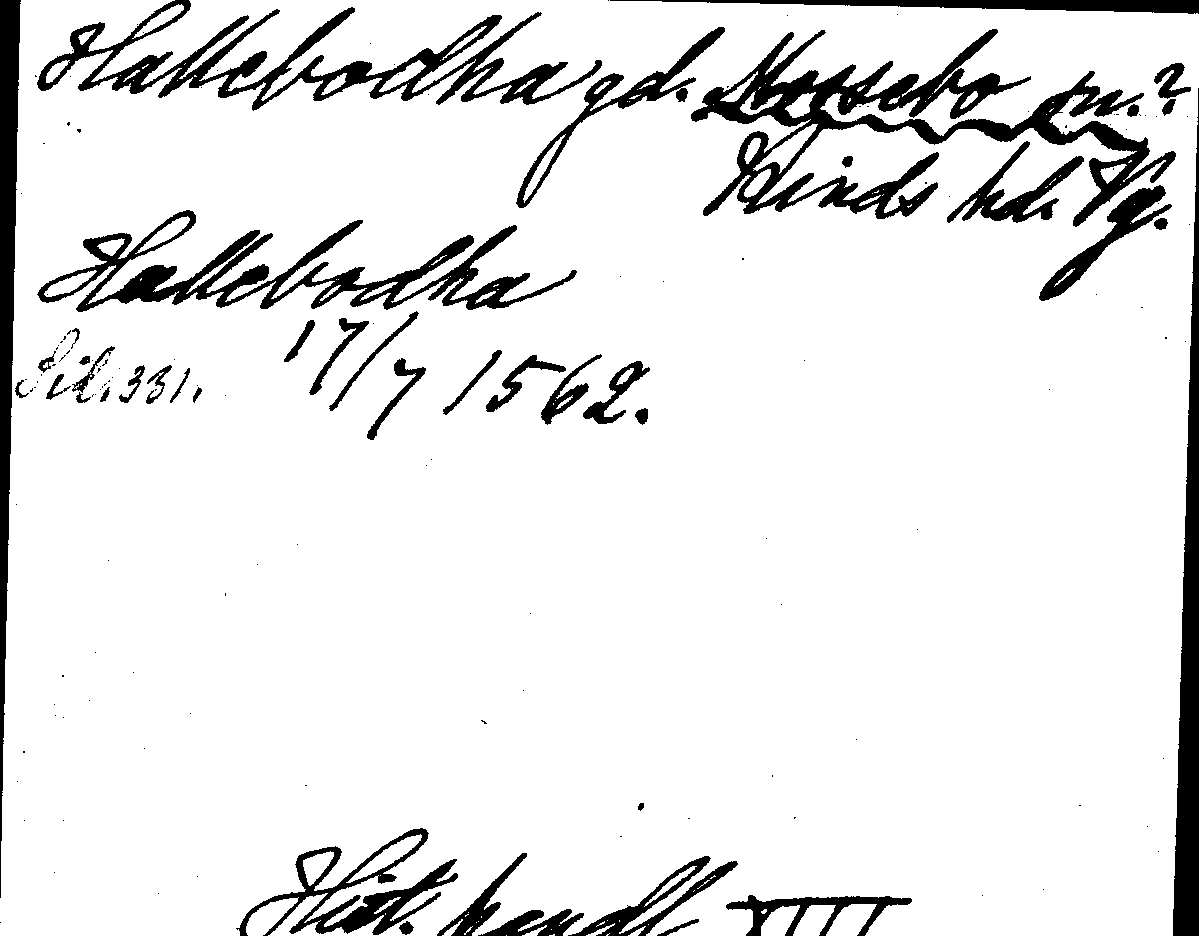 Hallebodha gd. Mossebo sn.?
Kinds hd. Vg.
Hallebodha
Sid. 331. 17/7 1562.
Hist. handl XIII